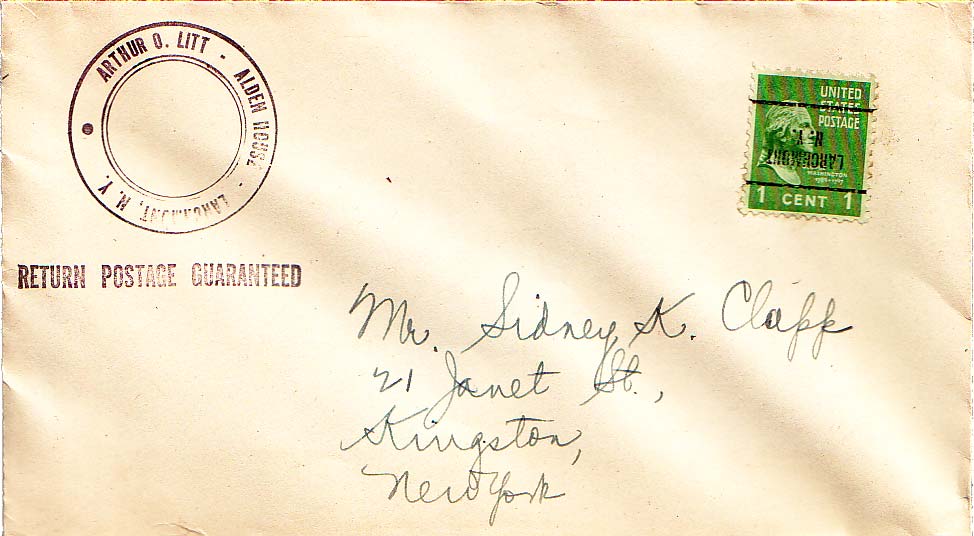 ARTHUR O. LITT - ALDEN HOUSE - LARCHMONT, N. Y.
RETURN POSTAGE GUARANTEED
UNITED
STATES
POSTAGE
LARCHMONT
N. Y.
WASHINGTON
1 CENT 1
Mr. Sidney K. Clapp
21 Janet St.,
Kingston,
New York